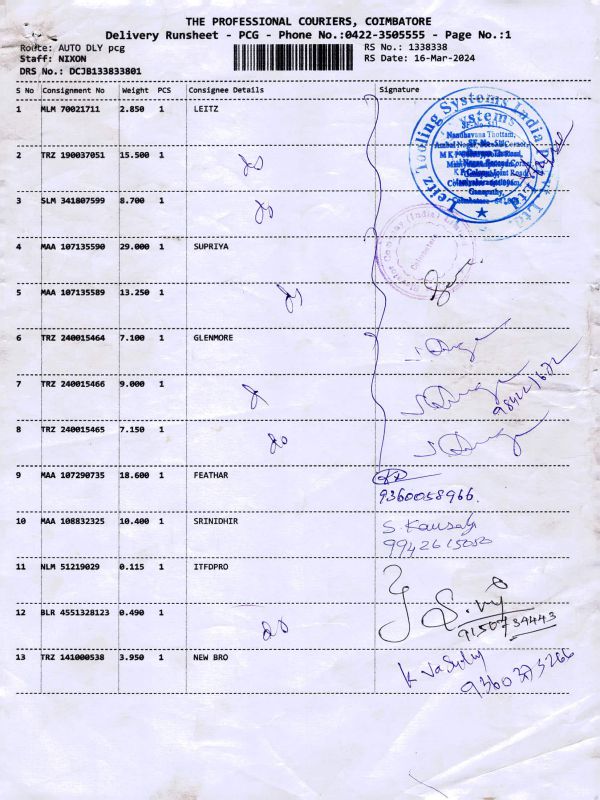 THE PROFESSIONAL COURIERS, COIMBATORE
Delivery Runsheet - PCG - Phone No.:0422-3505555 - Page No.:1
Route: AUTO DLY pcg RS No.: 1338338
Staff: NIXON RS Date: 16-Mar-2024
DRS No.: DCJB133833801
S No Consignment No Weight PCS Consignee Details Signature
1 MLM 70021711 2.850 1 LEITZ
Leitz Tooling Systems India Pvt. Ltd.
2 TRZ 190037051 15.500 1 do
3 SLM 341807599 8.700 1 do
4 MAA 107135590 29.000 1 SUPRIYA
5 MAA 107135589 13.250 1 do
6 TRZ 240015464 7.100 1 GLENMORE
7 TRZ 240015466 9.000 1
8 TRZ 240015465 7.150 1 do
9 MAA 107290735 18.600 1 FEATHAR
9360058966.
10 MAA 108832325 10.400 1 SRINIDHIR
S. Kousalya
9942615050
11 NLM 51219029 0.115 1 ITFDPRO
9150734443
12 BLR 4551328123 0.490 1 do
13 TRZ 141000538 3.950 1 NEW BRO
9360373266